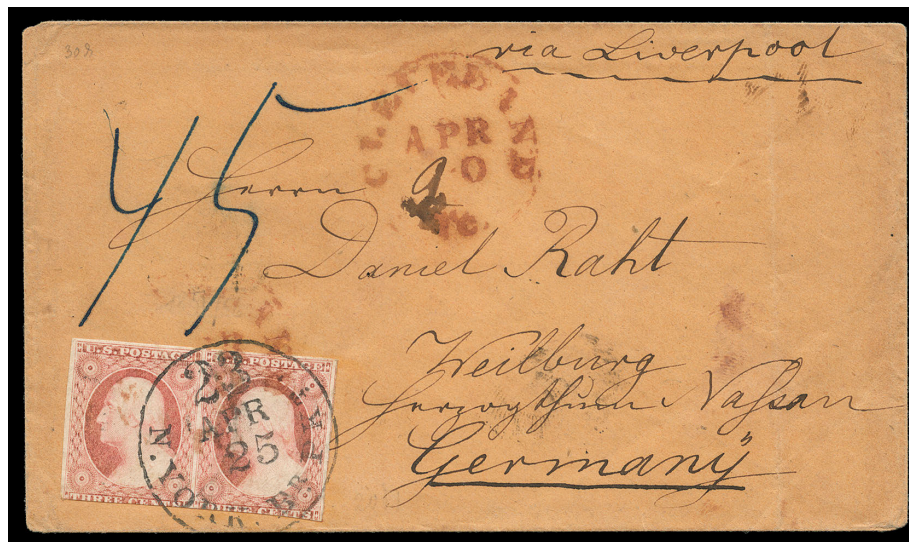 308
via Liverpool
CLEVELAND
APR
0
45
Herrn
Daniel Raht
Weilburg
Herzogthum Nassau
Germanÿ
U.S. POSTAGE
THREE CENTS
U.S. POSTAGE
THREE CENTS
23
APR
25
N. YORK BR. PKT